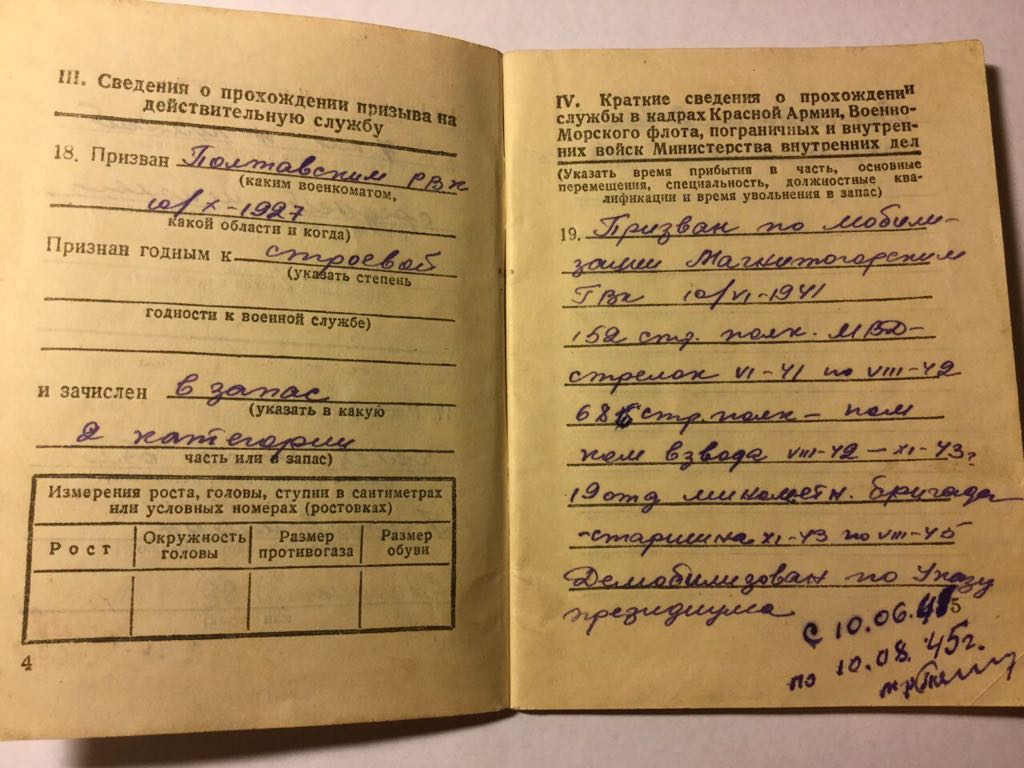 III. Сведения о прохождении призыва на
действительную службу
18. Призван Полтавским РВк
(каким военкоматом,
10/X-1927
какой области и когда)
Признан годным к строевой
(указать степень
годности к военной службе)
и зачислен в запас
(указать в какую
2 категории
часть или в запас)
Измерения роста, головы, ступни в сантиметрах
или условных номерах (ростовках)
Рост Окружность головы Размер противогаза Размер обуви
4
IV. Краткие сведения о прохождении
службы в кадрах Красной Армии, Военно-
Морского флота, пограничных и внутрен-
них войск Министерства внутренних дел
(Указать время прибытия в часть, основные
перемещения, специальность, должностные ква-
лификации и время увольнения в запас)
19. Призван по мобили-
зации Магнитогорским
ГВк 10/VI-1941
152 стд. полк. МВД-
стрелок VI-41 по VIII-42
68 стр. полк – пом
ком взвода VIII-42 – XI-43г
19 отд минометн. бригада
-старшина XI-43 по VIII-45
Демобилизован по Указу
президиума
5
с 10.06.41
по 10.08.45г.